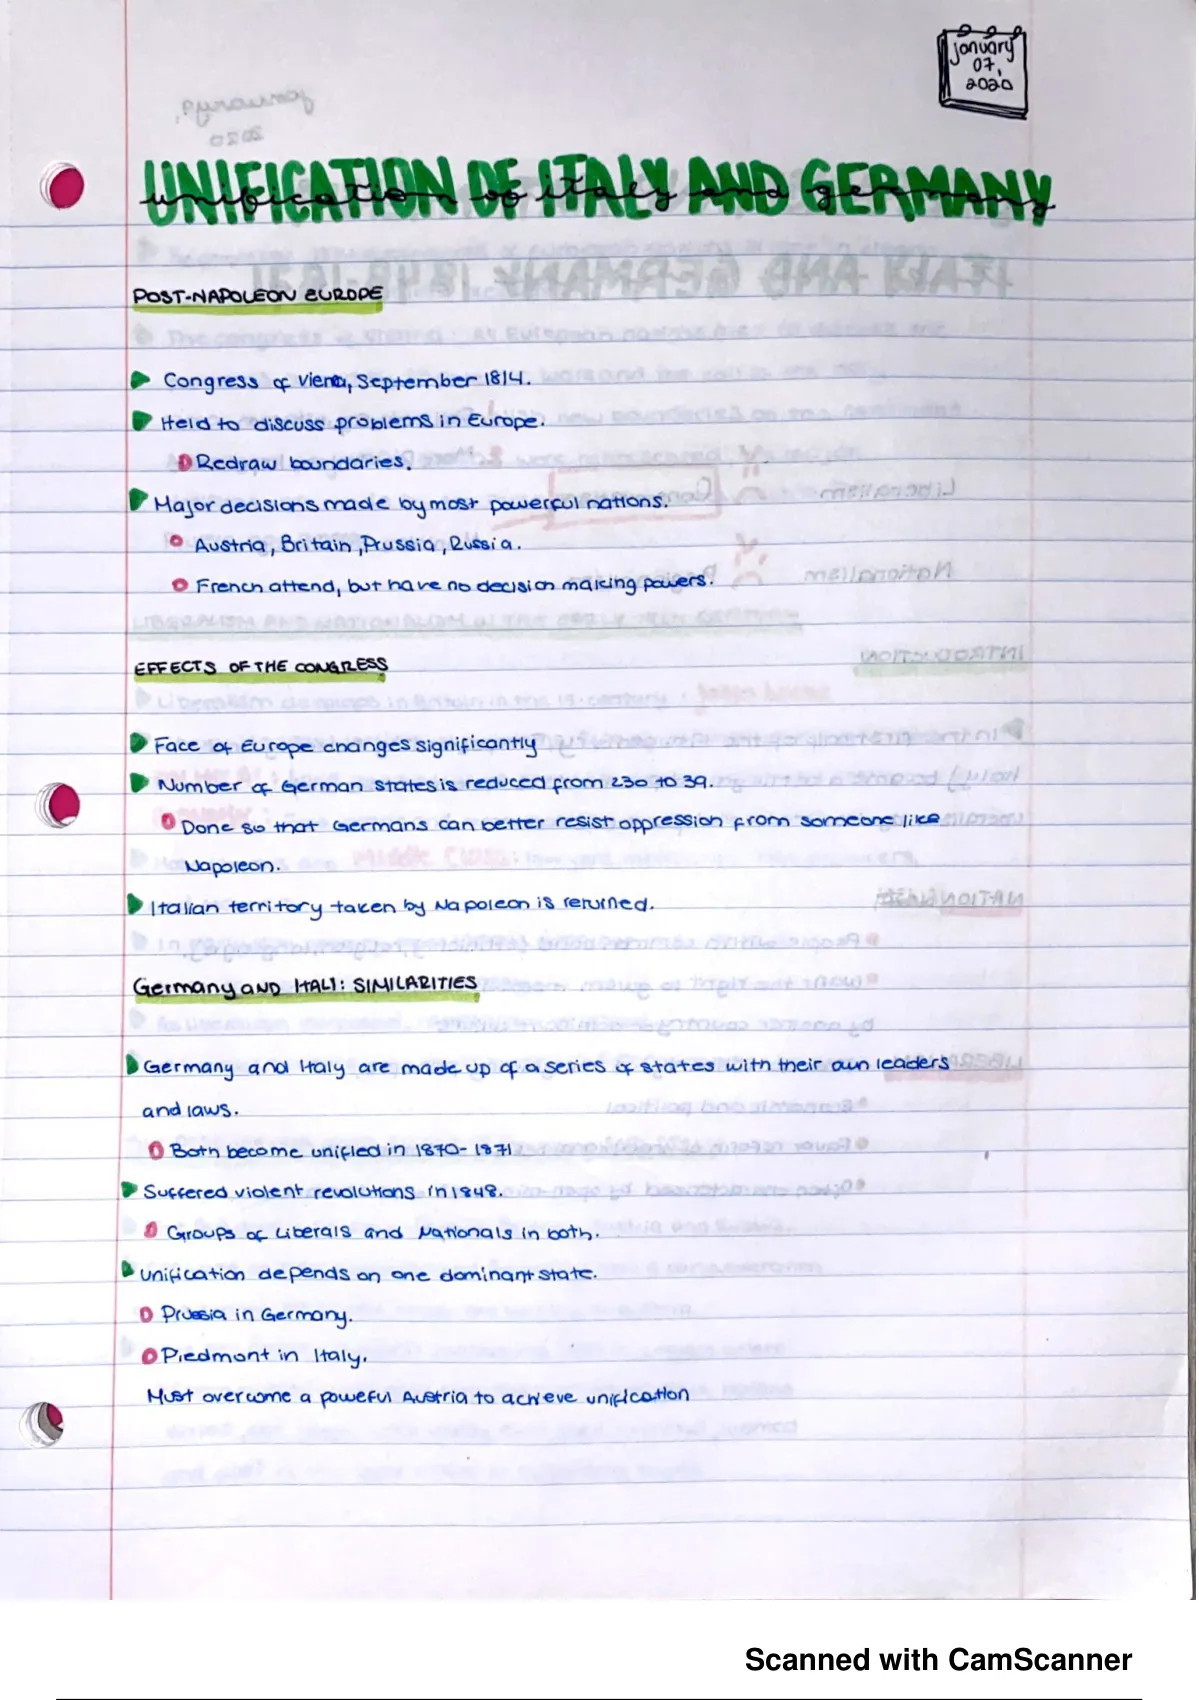 january
07,
2020
UNIFICATION OF ITALY AND GERMANY
unification of italy and germany
POST-NAPOLEON EUROPE
Congress of Vienna, September 1814.
Held to discuss problems in Europe.
Redraw boundaries.
Major decisions made by most powerful nations.
Austria, Britain, Prussia, Russia.
French attend, but have no decision making powers.
EFFECTS OF THE CONGRESS
Face of Europe changes significantly
Number of German states is reduced from 230 to 39.
Done so that Germans can better resist oppression from someone like
Napoleon.
Italian territory taken by Napoleon is returned.
Germany AND ITALY: SIMILARITIES
Germany and Italy are made up of a series of states with their own leaders
and laws.
Both become unified in 1870-1871
Suffered violent revolutions in 1848.
Groups of Liberals and Nationals in both.
Unification depends on one dominant state.
Prussia in Germany.
Piedmont in Italy.
Must overcome a powerful Austria to achieve unification
Scanned with CamScanner